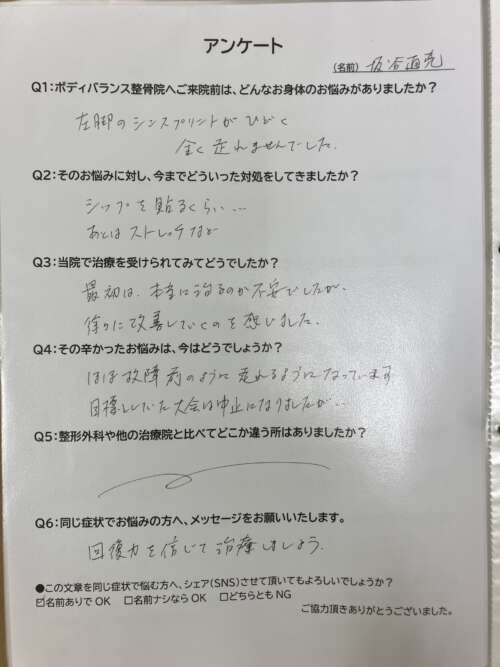 アンケート
(名前) 坂谷直亮
Q1:ボディバランス整骨院へご来院前は、どんなお身体のお悩みがありましたか?
左脚のシンスプリントがひどく
全く走れませんでした.
Q2:そのお悩みに対し、今までどういった対処をしてきましたか?
シップを貼るくらい…
あとはストレッチなど
Q3:当院で治療を受けられてみてどうでしたか?
最初は、本当に治るのか不安でしたが、
徐々に改善していくのを感じました.
Q4:その辛かったお悩みは、今はどうでしょうか?
ほぼ故障前のように走れるようになっています
目標としていた大会は中止になりましたが…
Q5:整形外科や他の治療院と比べてどこか違う所はありましたか?
Q6:同じ症状でお悩みの方へ、メッセージをお願いいたします。
回復力を信じて治療しましょう.
●この文章を同じ症状で悩む方へ、シェア(SNS)させて頂いてもよろしいでしょうか?
☑名前ありで OK □名前ナシなら OK □どちらとも NG
ご協力頂きありがとうございました。